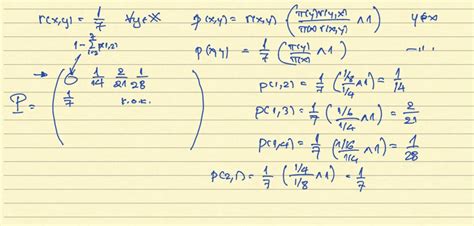 r(x,y) = 1/7 ∀y∈X p(x,y) = r(x,y) · (π(y)r(y,x)/π(x)r(x,y) ∧ 1) y≠x
1 - Σ p(1,2) p(x,y) = 1/7 (π(y)/π(x) ∧ 1) —"—
P = ( 0 1/14 2/21 1/28 p(1,2) = 1/7 (1/8 / 1/4 ∧ 1) = 1/14
1/7 p(1,3) = 1/7 (1/6 / 1/4 ∧ 1) = 2/21
p(1,4) = 1/7 (1/16 / 1/4 ∧ 1) = 1/28
p(2,1) = 1/7 (1/4 / 1/8 ∧ 1) = 1/7